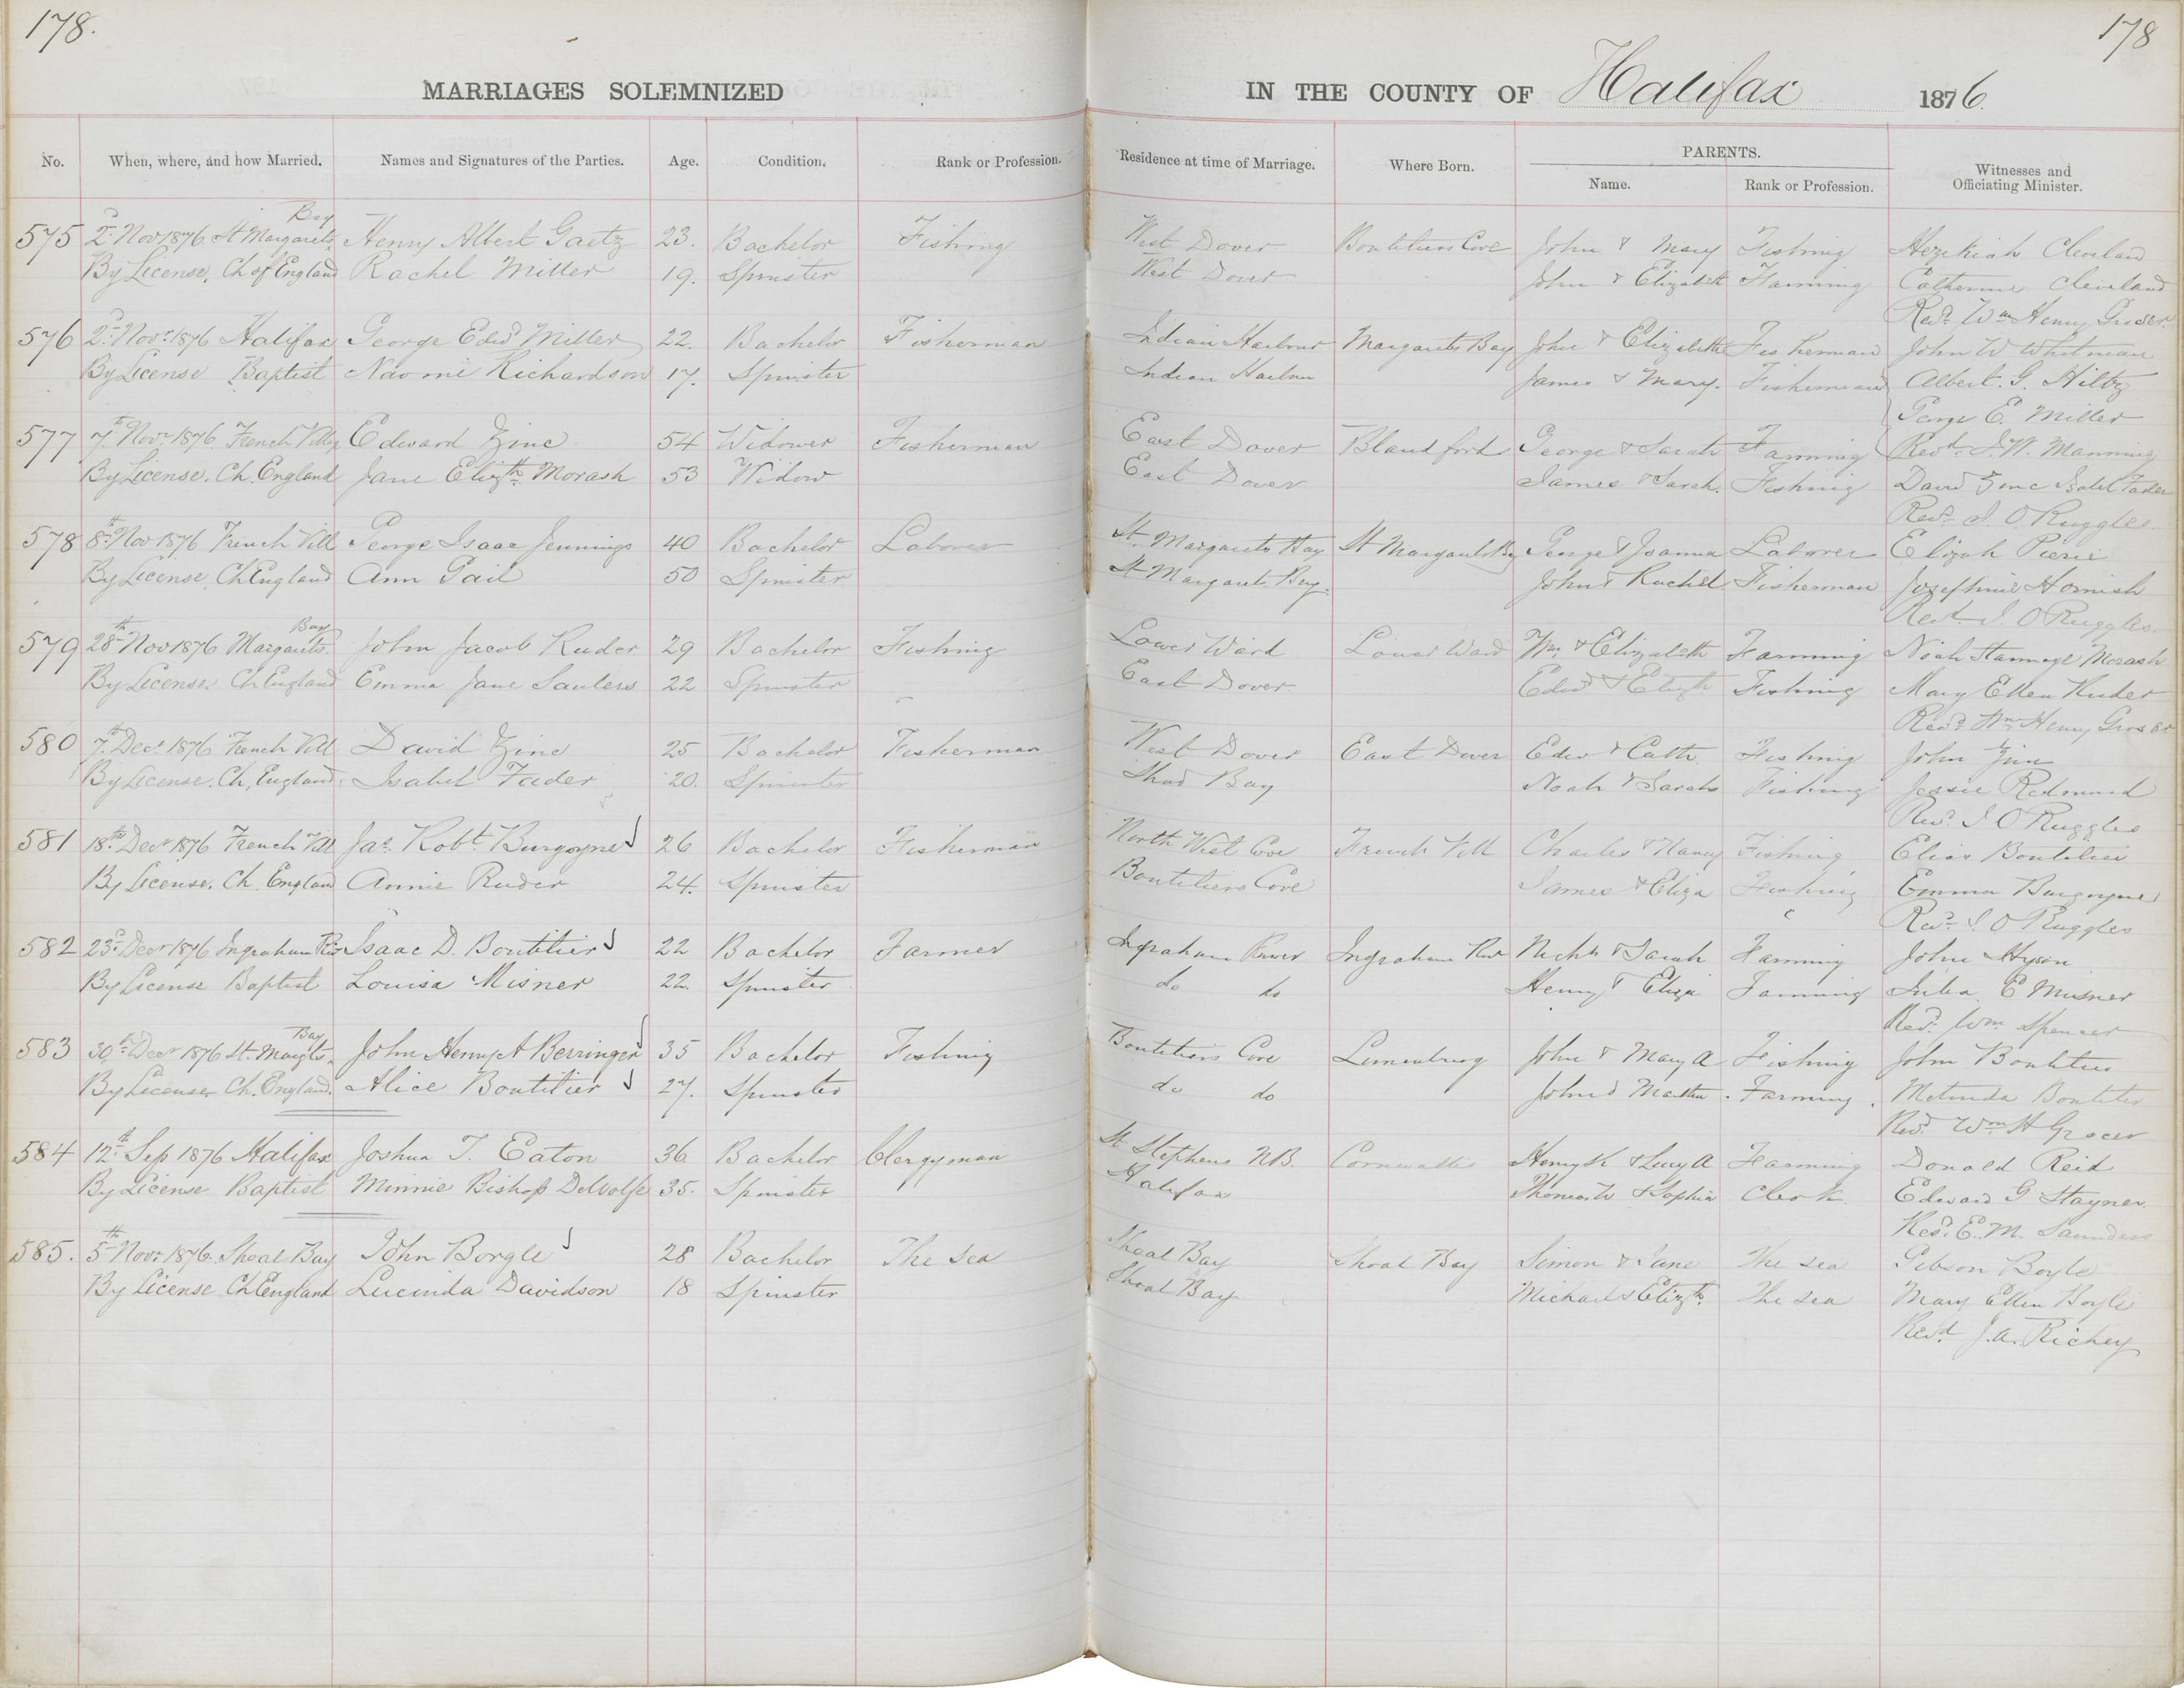 178.
178
MARRIAGES SOLEMNIZED
IN THE COUNTY OF Halifax 1876.
No. When, where, and how Married. Names and Signatures of the Parties. Age. Condition. Rank or Profession. Residence at time of Marriage. Where Born. PARENTS. Name. Rank or Profession. Witnesses and Officiating Minister.
575 2d Nov 1876. St Margarets Bay Henry Albert Gaetz 23. Bachelor Fishing West Dover Boutiliers Cove John & Mary Fishing Hezekiah Cleveland
By License. Ch of England Rachel Miller 19. Spinster West Dover John & Elizabeth Farming Catherine Cleveland
Revd. Wm Henry Groser.
576 2d Novr 1876 Halifax George Edwd Miller 22. Bachelor Fisherman Indian Harbour Margarets Bay John & Elizabeth Fisherman John W Whitman
By License Baptist Naomi Richardson 17. Spinster Indian Harbour James & Mary. Fisherman Albert. G. Hiltz
George E. Miller
577 7th Novr 1876. French Village Edward Zinc 54 Widower Fisherman East Dover Blandford George & Sarah Farming Revd. J. W. Manning
By License. Ch. England Jane Elizth Morash 53 Widow East Dover James & Sarah. Fishing David Zinc Isabel Fader
Revd. J. O. Ruggles.
578 8th Nov 1876 French Vill George Isaac Jennings 40 Bachelor Laborer St Margarets Bay St Margarets Bay George & Joanna Laborer Elizah Pierie
By License Ch England Ann Gail 50 Spinster St Margarets Bay. John & Rachel Fisherman Josephine Hornish
Revd J. O Ruggles.
579 28th Nov 1876 Margarets Bay John Jacob Ruder 29 Bachelor Fishing Lower Ward Lower Ward Wm & Elizabeth Farming Noah Morash
By License Ch England Emma Jane Saulers 22 Spinster East Dover. Edwd & Elizth Fishing Mary Ellen Ruder
Revd Wm Henry Groser
580 7th Decr 1876 French Vill David Zinc 25 Bachelor Fisherman West Dover East Dover Edwd & Cath Fishing John Zinc
By License. Ch. England Isabel Fader 20. Spinster Shad Bay Noah & Sarah Fishing Jessie Redmond
Revd. J O Ruggles
581 18th Decr 1876 French Vill Jas. Robt Burgoyne 26 Bachelor Fisherman North West Cove French Vill Charles & Nancy Fishing Elias Boutilier
By License. Ch. England Annie Ruder 24. Spinster Boutiliers Cove James & Eliza Fishing Emma Burgoyne
Revd. J O Ruggles
582 23d Decr 1876 Ingraham Riv Isaac D. Boutilier 22 Bachelor Farmer Ingraham River Ingraham River Nichs & Sarah Farming John Hyson
By License Baptist Louisa Misner 22. Spinster do do Henry & Eliza Farming Julia E Musner
Revd. Wm Spencer
583 30th Decr 1876 St. Margts Bay John Henry A Berringer 35 Bachelor Fishing Boutiliers Cove Lunenburg John & Mary A Fishing John Boutilier
By License Ch. England. Alice Boutilier 27. Spinster do do John & Martha. Farming. Melinda Boutilier
Revd. Wm H Groser
584 12th Sep 1876 Halifax Joshua T. Eaton 36 Bachelor Clergyman St Stephens NB. Cornwallis Henry K & Lucy A Farming Donald Reid
By License Baptist Minnie Bishop DeWolfe 35. Spinster Halifax Thomas W & Sophia Clerk Edward G Stayner
Revd. E. M. Saunders
585. 5th Novr 1876. Shoal Bay John Borgle 28 Bachelor The Sea Shoal Bay Shoal Bay Simon & Jane The sea Gibson Boyle
By License Ch England Lucinda Davidson 18 Spinster Shoal Bay Michael & Elizth. The sea Mary Ellen Boyle
Revd J. A. Richey